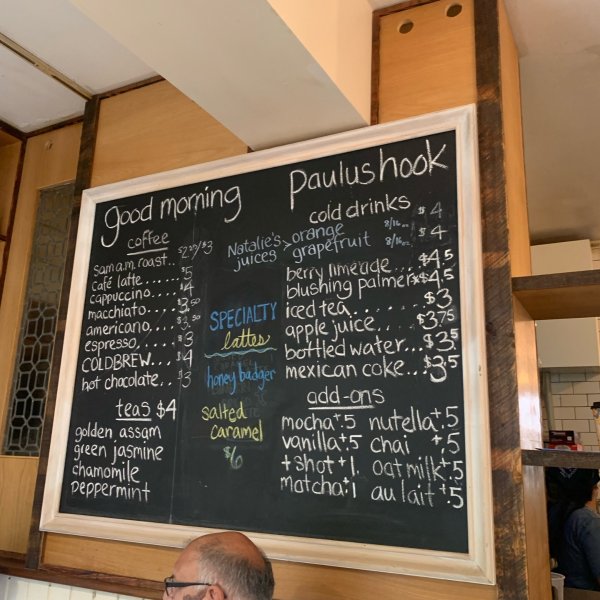 good morning
coffee
sam a.m. roast.. $2.75/$3
café latte..... $5
cappuccino.... $4
macchiato.... $3.50
americano.... $3.50
espresso..... $3
COLDBREW... $4
hot chocolate.. $3
teas $4
golden assam
green jasmine
chamomile
peppermint
Natalie's juices >
SPECIALTY
lattes
honey badger
salted
caramel
$6
paulushook
cold drinks
orange 8/16oz $4
grapefruit 8/16oz. $4
berry limeade... $4.5
blushing palmer $4.5
iced tea....... $3
apple juice..... $3.75
bottled water... $3.5
mexican coke... $3.5
add-ons
mocha+.5 nutella+.5
vanilla+.5 chai +.5
+shot+1. oat milk+.5
matcha+.1 au lait+.5